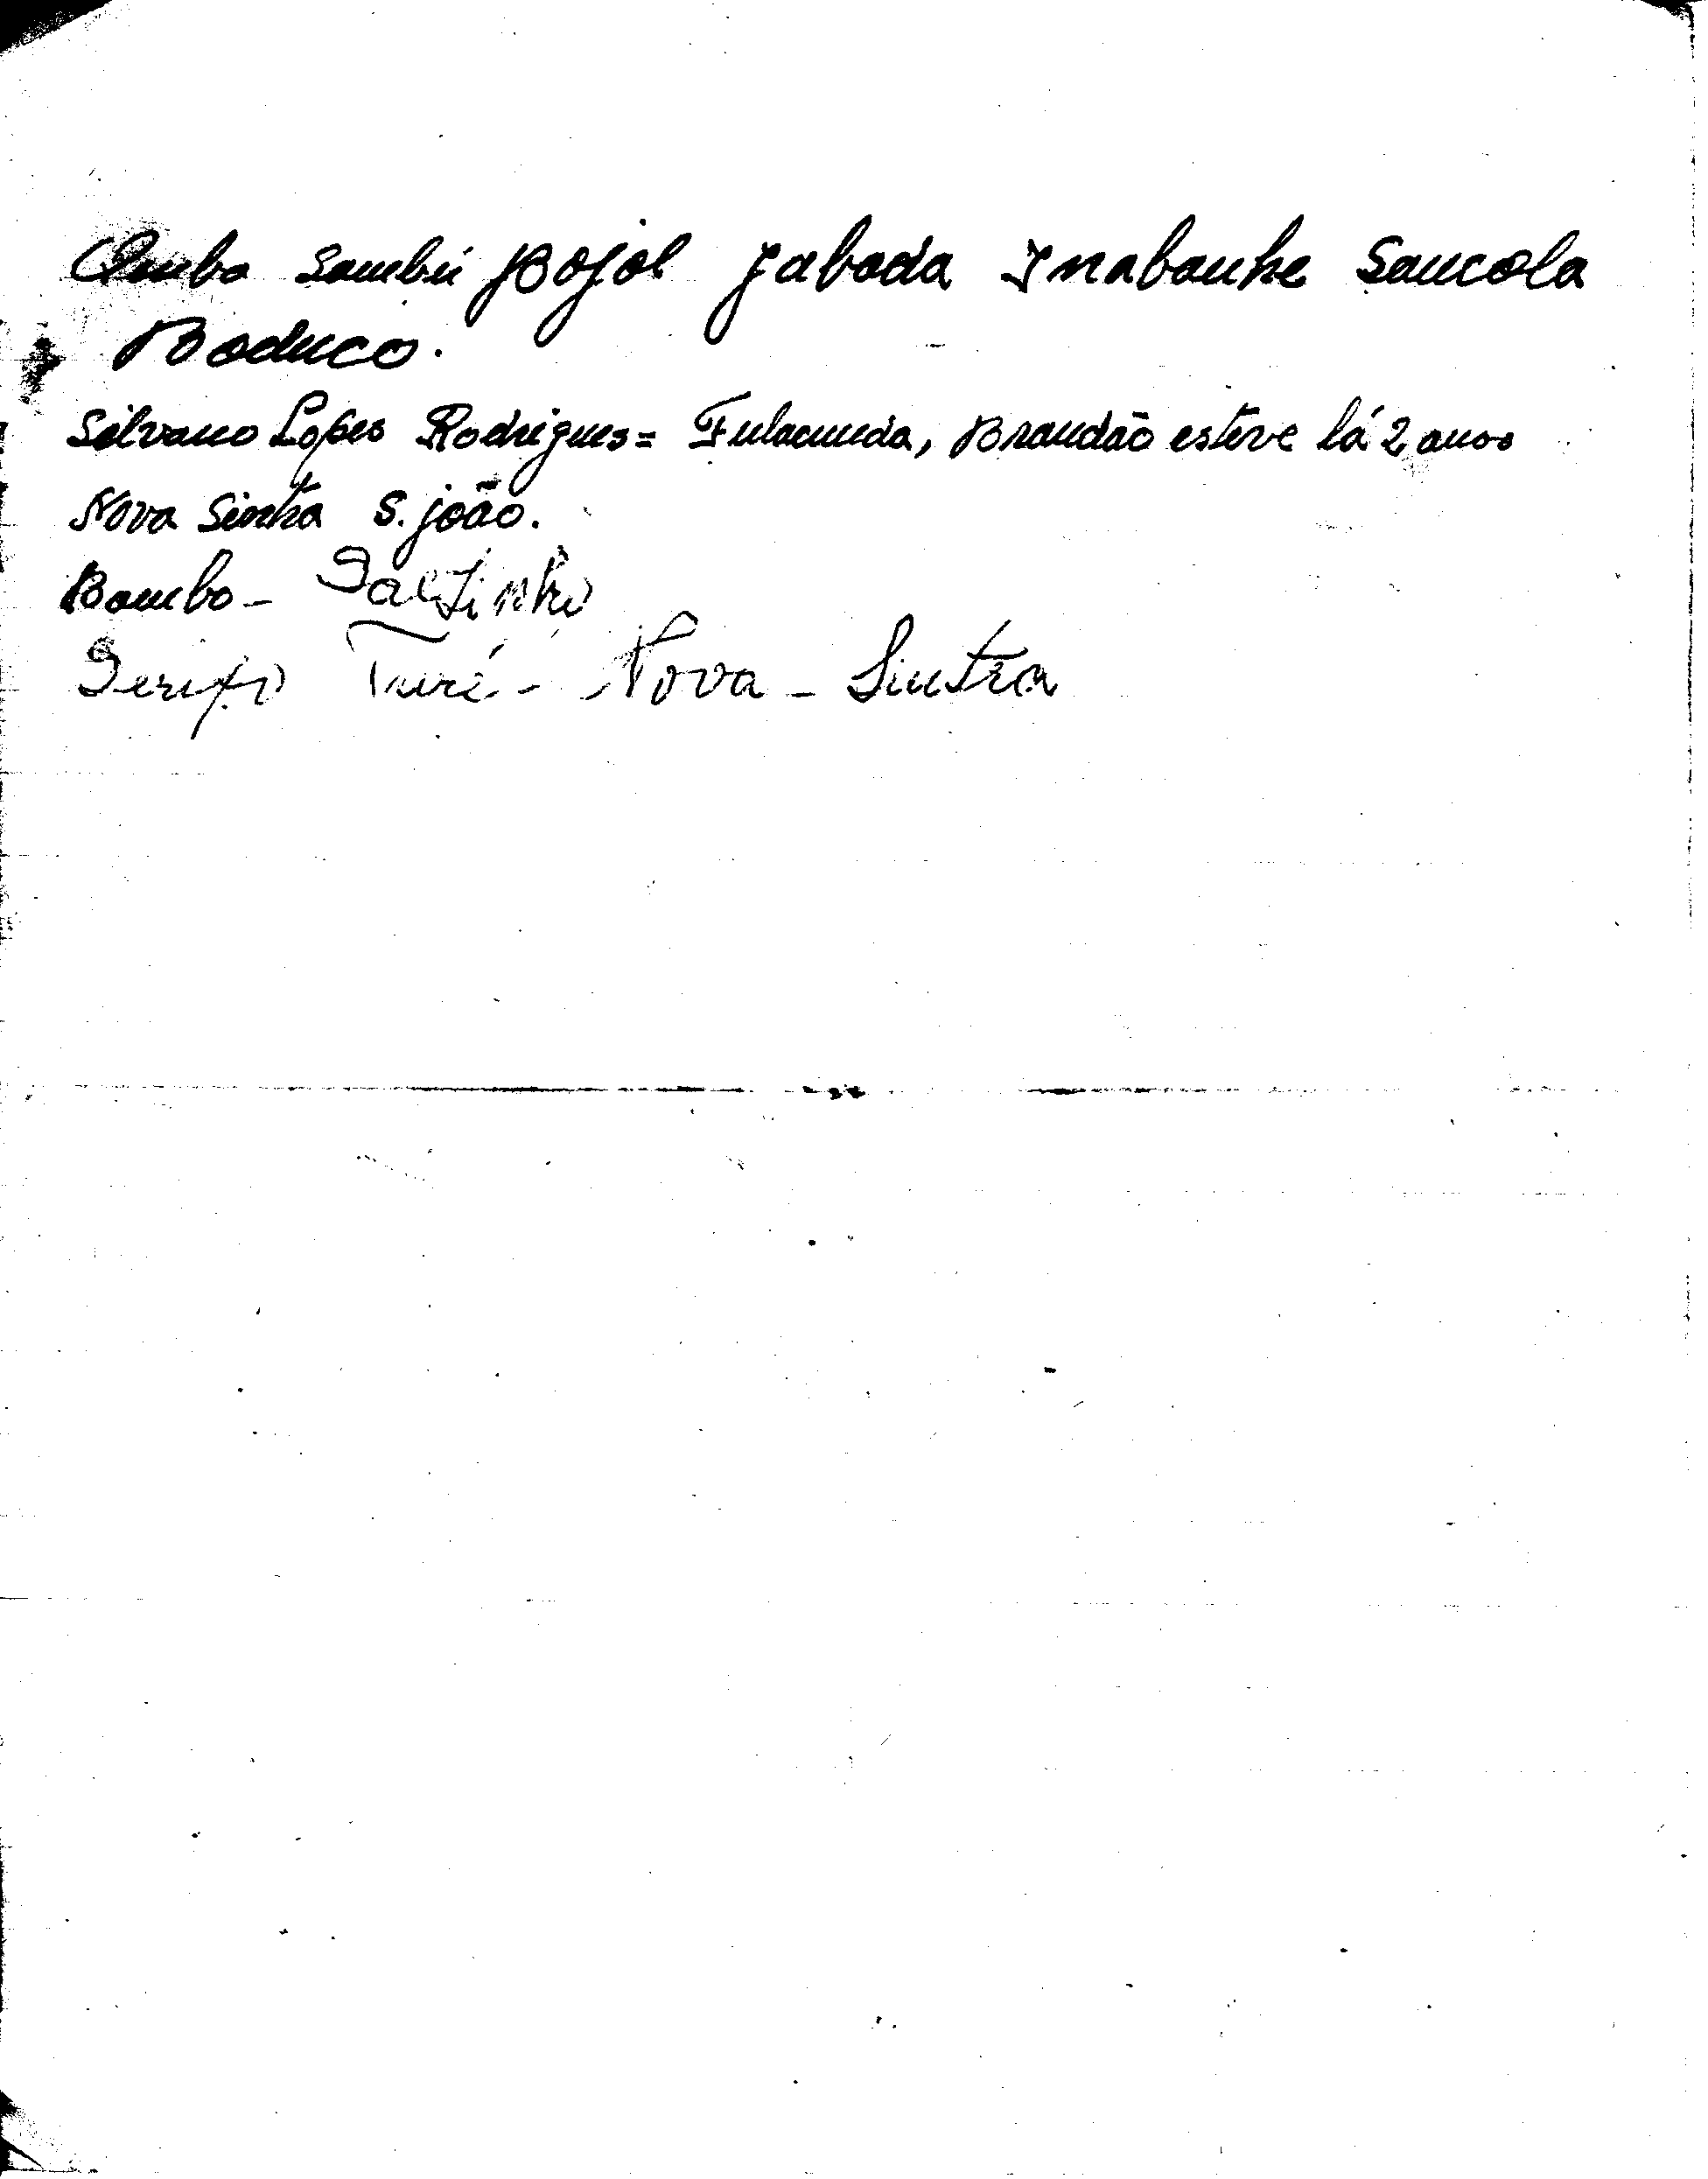 Sambú Bojol Jabada Inabanke Sancola
Boduco.
Silvano Lopes Rodrigues = Fulacunda, Brandão esteve lá 2 anos
Nova Sintra S. joão.
Bambo - Saltinho
Turé - Nova - Sintra